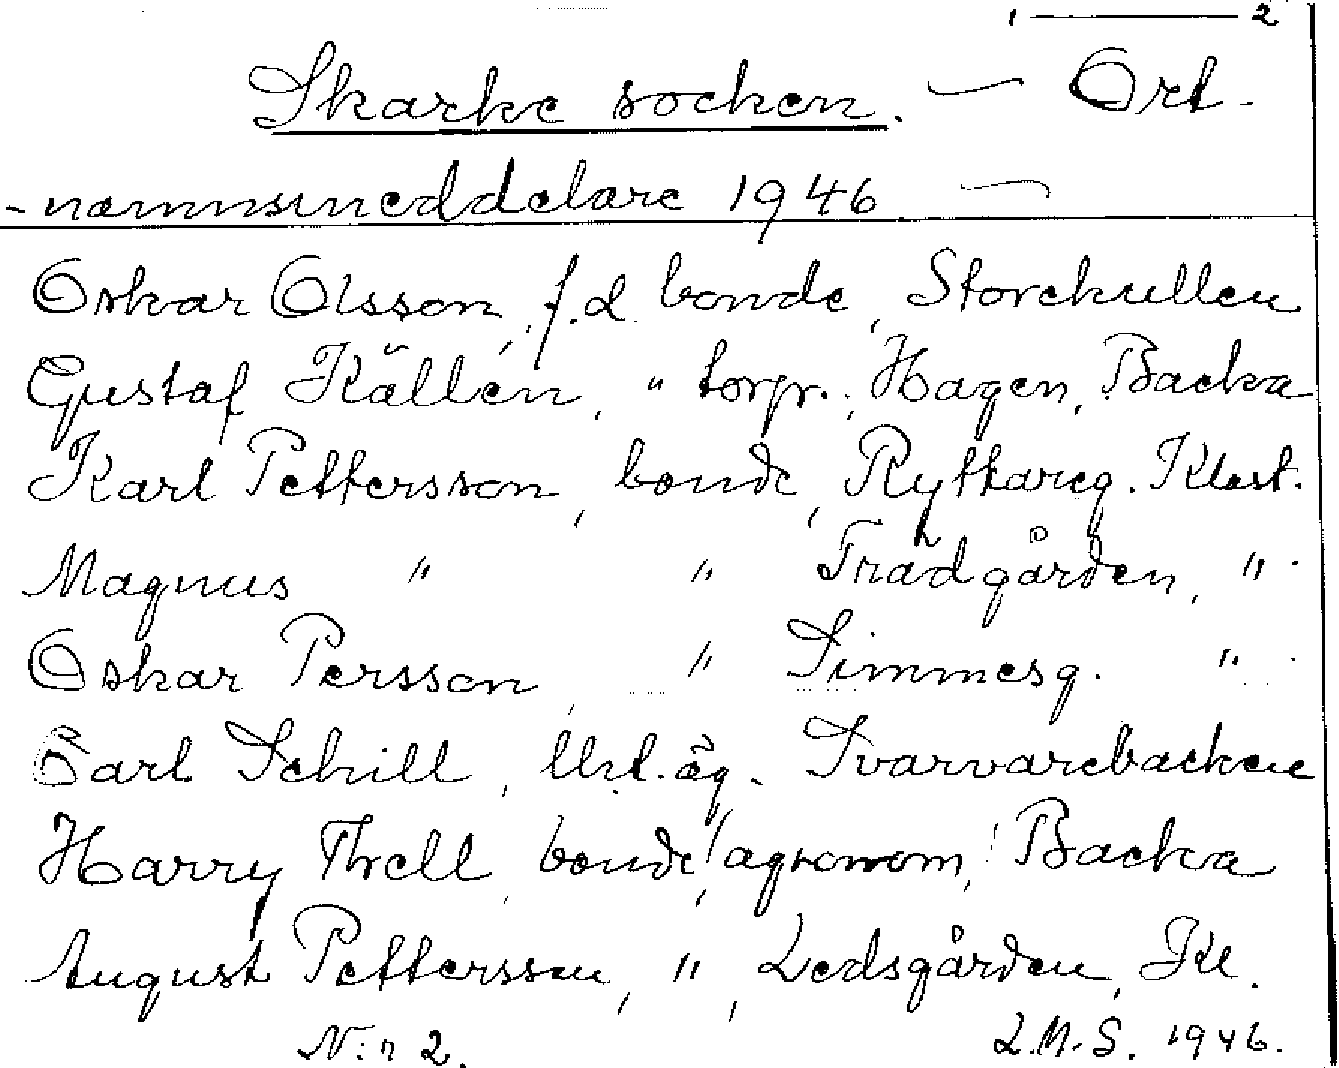 1 — 2
Skarke socken. — Ort-
-namnsmeddelare 1946 —
Oskar Olsson, f.d. bonde, Storekullen
Gustaf Källén, " torpr., Hagen, Backa
Karl Pettersson, bonde, Ryttareg. Klost.
Magnus " " Trädgården, "
Oskar Persson, " Simmesg. "
Carl Schill, Urt.äg. Svarvarebacken
Harry Threll, bonde, agronom, Backa
August Pettersson, ", Ledsgården, Kl.
N:r 2. L.M.S. 1946.